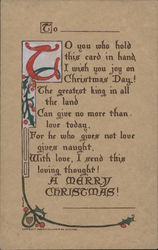 To
To you who hold
this card in hand,
I wish you joy on
Christmas Day!
The greatest king in all
the land
Can give no more than
love today,
For he who gives not love
gives naught,
With love, I send this
loving thought!
A MERRY
CHRISTMAS!